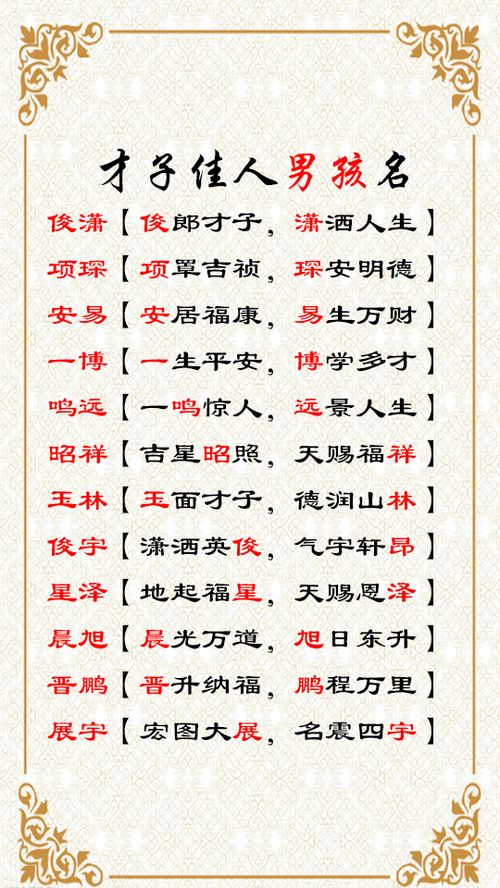 才子佳人男孩名
俊潇【俊郎才子，潇洒人生】
项琛【项罩吉祯，琛安明德】
安易【安居福康，易生万财】
一博【一生平安，博学多才】
鸣远【一鸣惊人，远景人生】
昭祥【吉星昭照，天赐福祥】
玉林【玉面才子，德润山林】
俊宇【潇洒英俊，气宇轩昂】
星泽【地起福星，天赐恩泽】
晨旭【晨光万道，旭日东升】
晋鹏【晋升纳福，鹏程万里】
展宇【宏图大展，名震四宇】